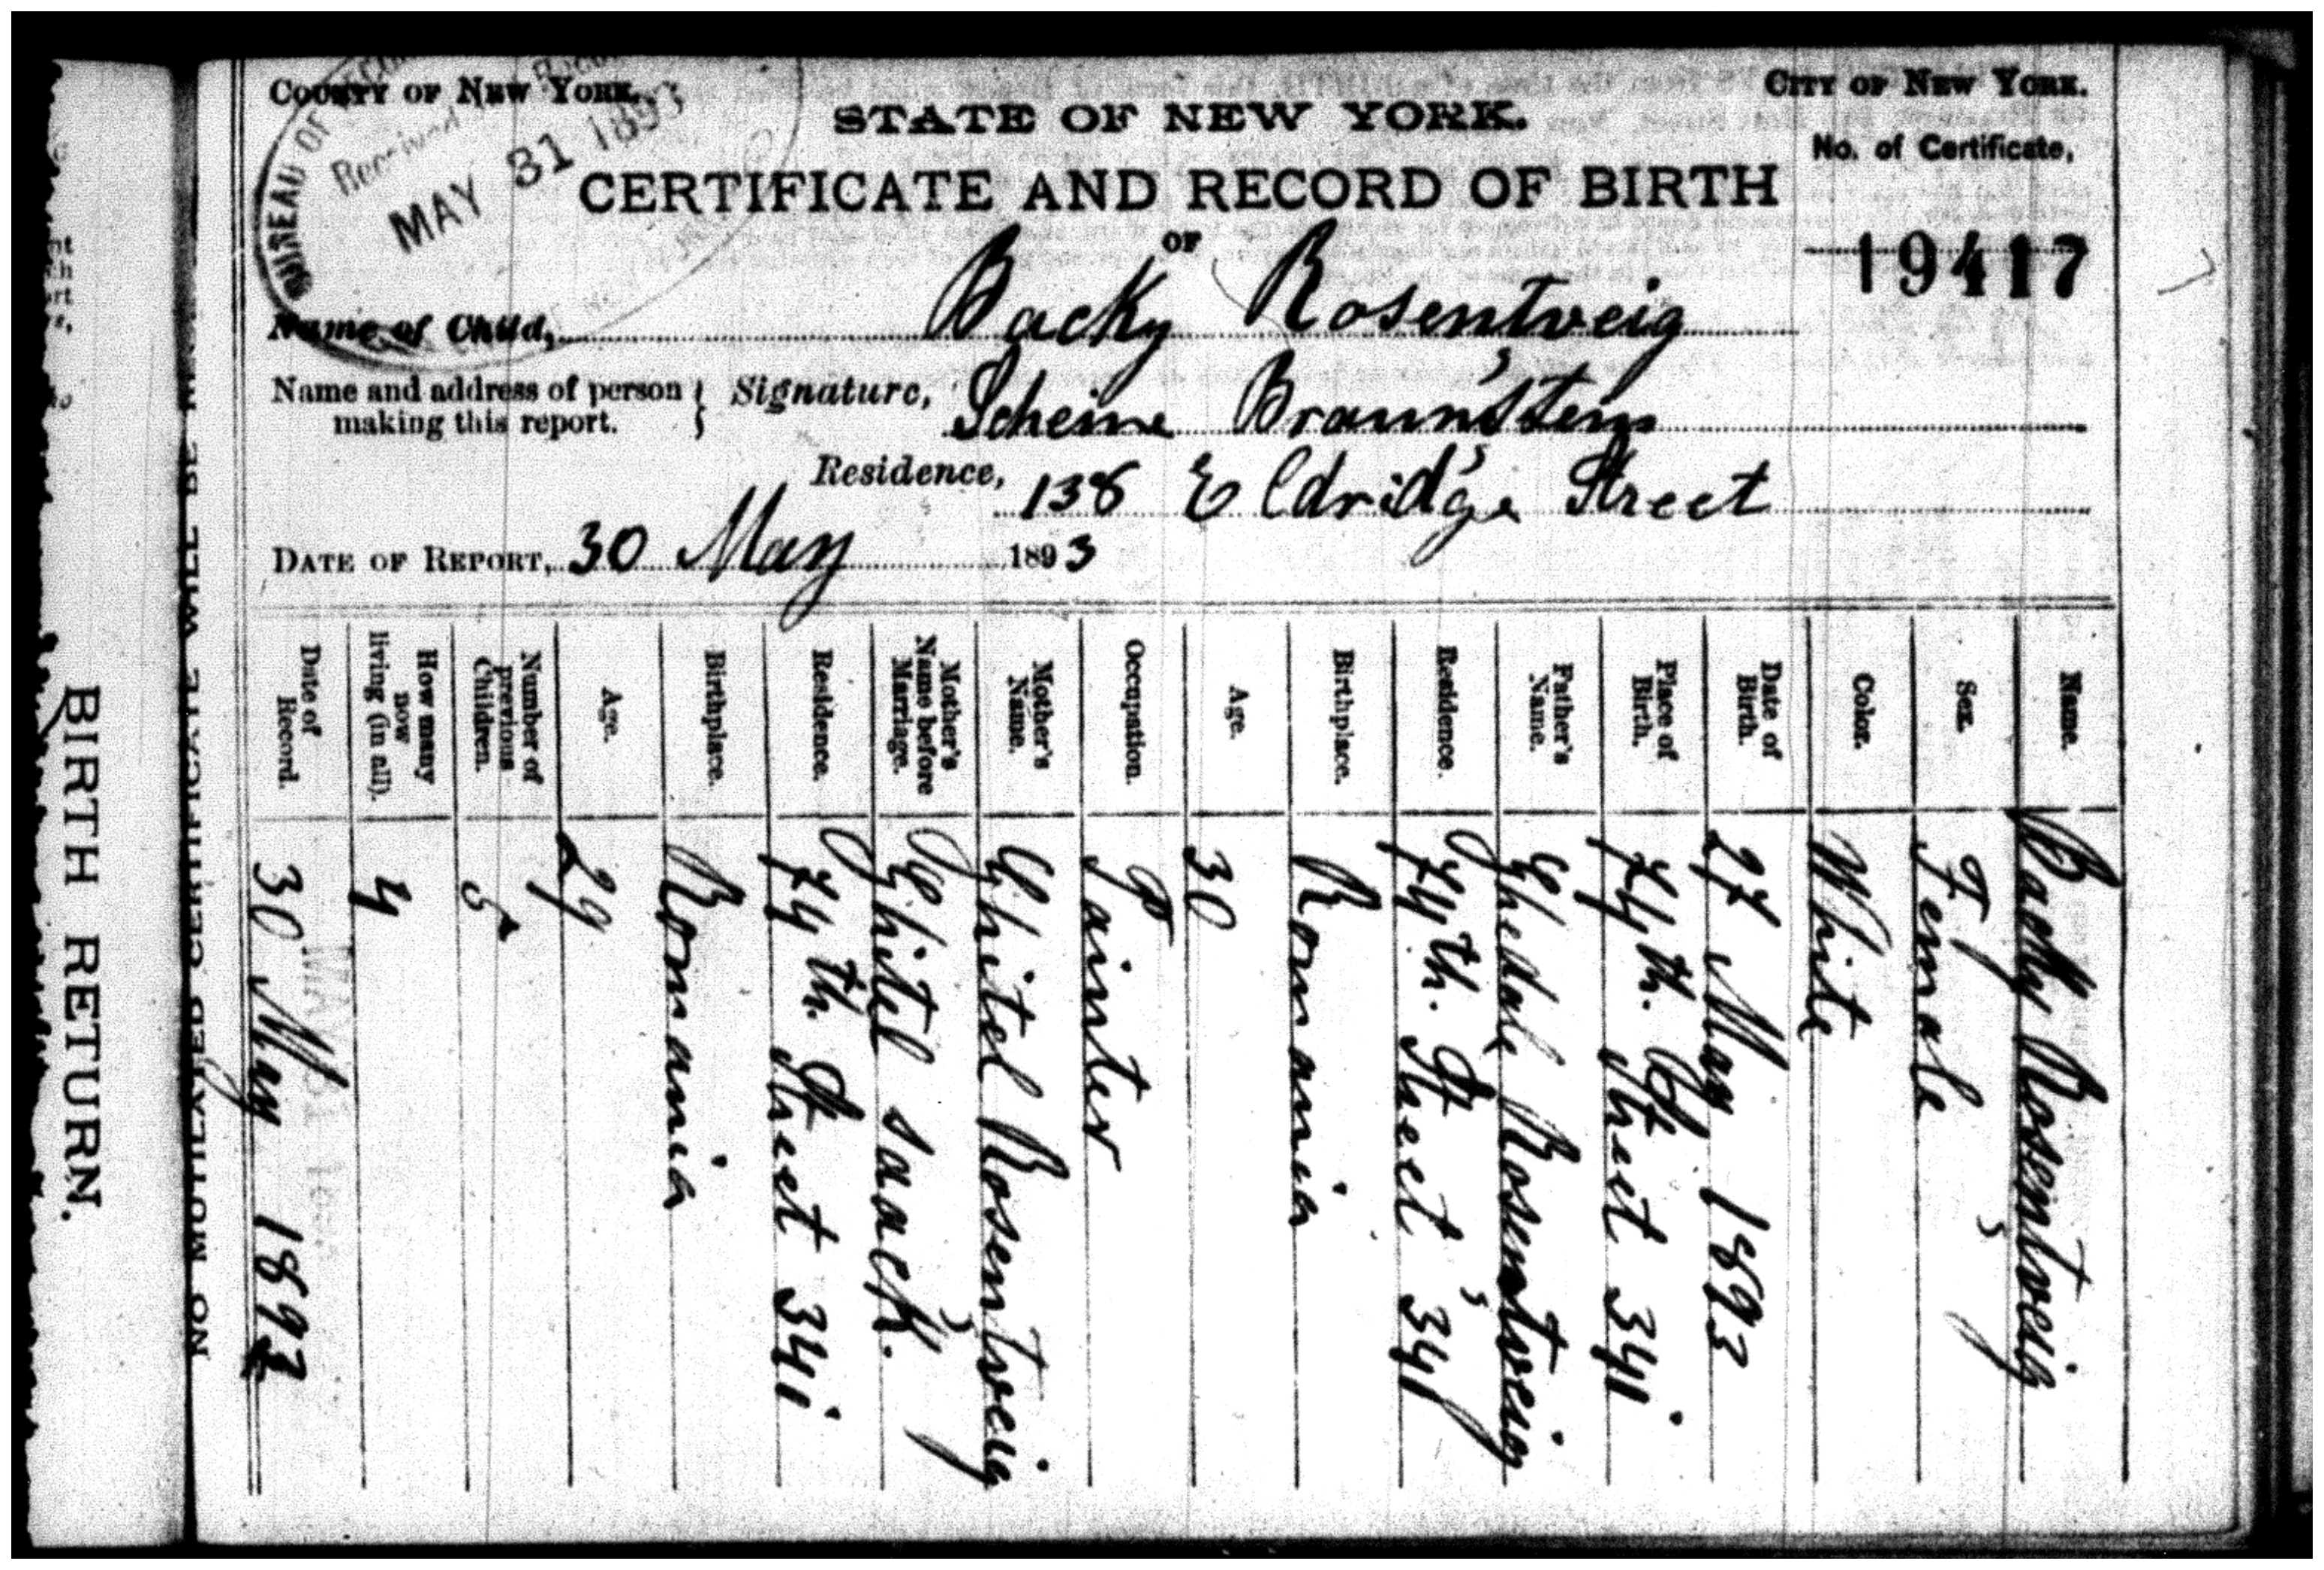 COUNTY OF NEW YORK.
CITY OF NEW YORK.
BUREAU OF
Received
MAY 31 1893
STATE OF NEW YORK.
No. of Certificate,
CERTIFICATE AND RECORD OF BIRTH
OF
19417
Name of Child, Backy Rosentveig
Name and address of person making this report.
Signature, Scheine Braunstein
Residence, 138 Eldridge Street
DATE OF REPORT, 30 May 1893
Name. Backy Rosentveig
Sex. Female
Color. White
Date of Birth. 27 May 1893
Place of Birth. 74 th. Street 341
Father's Name. Ghedale Rosentveig
Residence. 74 th. Street 341
Birthplace. Romania
Age. 30
Occupation. Painter
Mother's Name. Ghitel Rosentveig
Mother's Name before Marriage. Ghitel saack.
Residence. 74 th. Street 341
Birthplace. Romania
Age. 29
Number of previous Children. 5
How many now living (in all). 4
Date of Record. 30 May 1893
NO MUTILATED CERTIFICATE WILL BE
BIRTH RETURN.